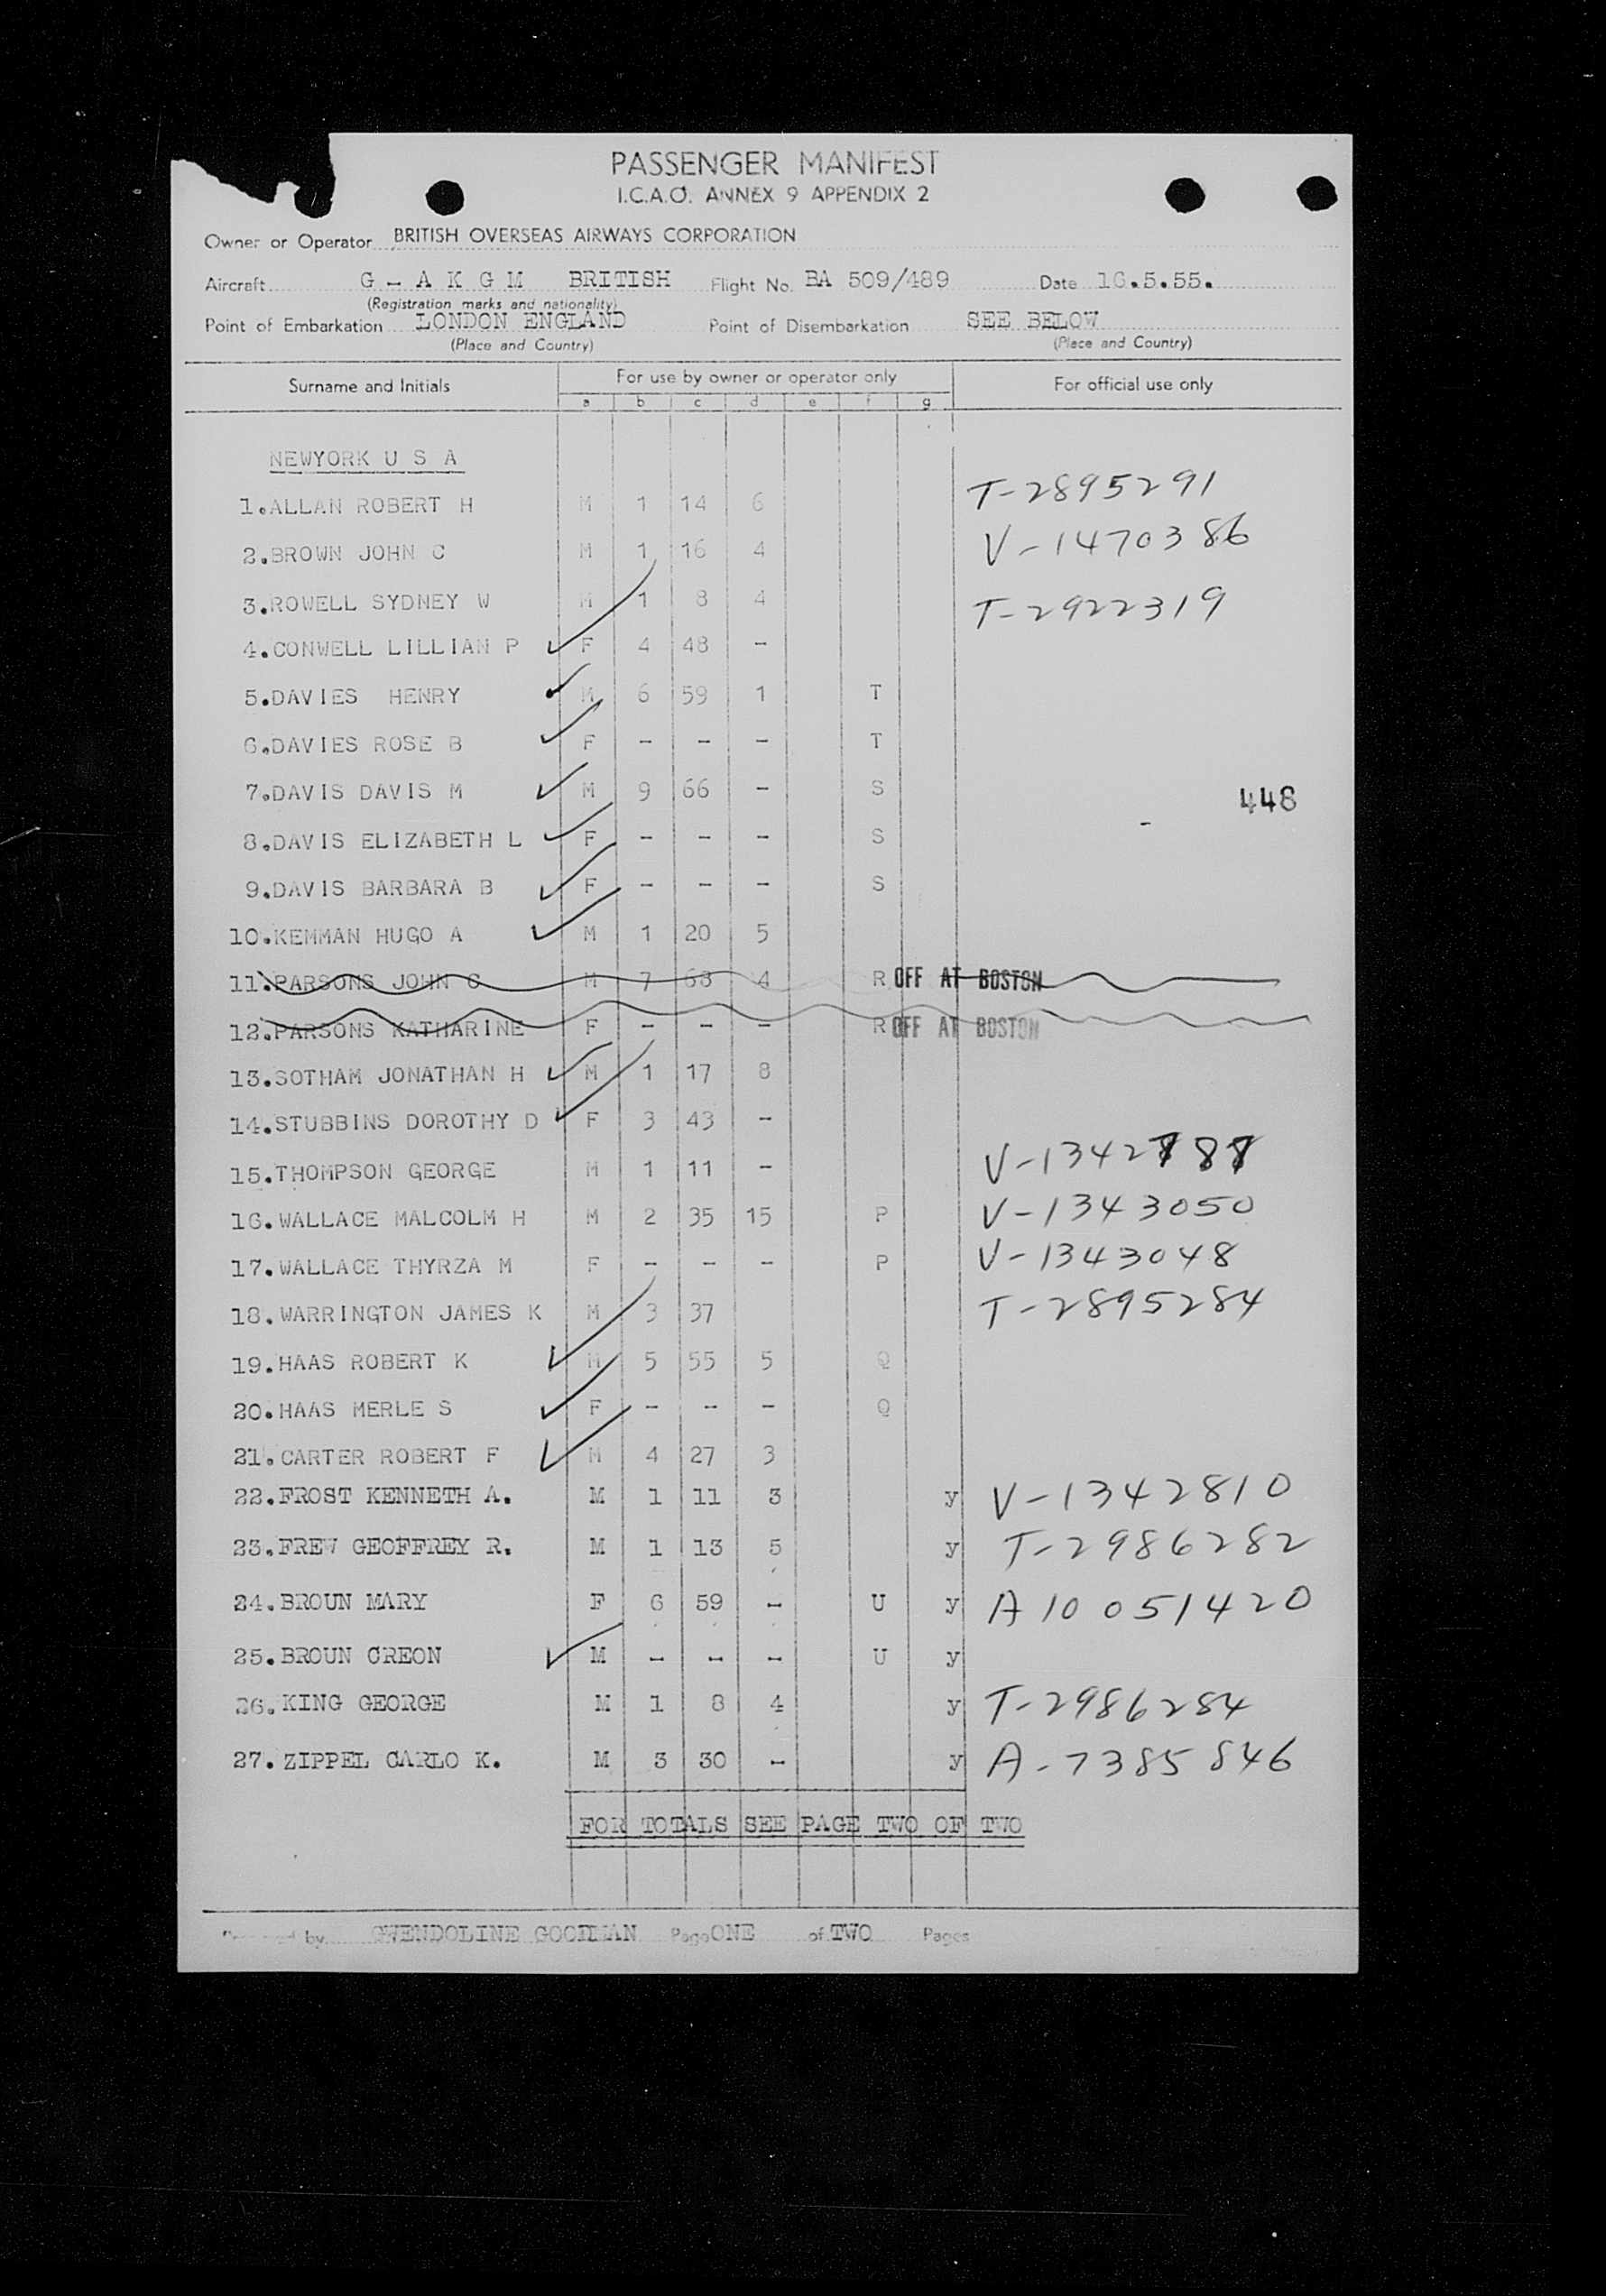 PASSENGER MANIFEST
I.C.A.O. ANNEX 9 APPENDIX 2
Owner or Operator BRITISH OVERSEAS AIRWAYS CORPORATION
Aircraft G - A K G M BRITISH Flight No. BA 509/489 Date 16.5.55.
(Registration marks and nationality)
Point of Embarkation LONDON ENGLAND Point of Disembarkation SEE BELOW
(Place and Country) (Place and Country)
Surname and Initials For use by owner or operator only For official use only
a b c d e f g
NEWYORK U S A
1.ALLAN ROBERT H M 1 14 6 T-2895291
2.BROWN JOHN C M 1 16 4 V-1470386
3.ROWELL SYDNEY W M 1 8 4 T-2922319
4.CONWELL LILLIAN P F 4 48 -
5.DAVIES HENRY M 6 59 1 T
6.DAVIES ROSE B F - - - T
7.DAVIS DAVIS M M 9 66 - S
448
8.DAVIS ELIZABETH L F - - - S
9.DAVIS BARBARA B F - - - S
10.KEMMAN HUGO A M 1 20 5
11.PARSONS JOHN C M 7 68 4 R OFF AT BOSTON
12.PARSONS KATHARINE F - - - R OFF AT BOSTON
13.SOTHAM JONATHAN H M 1 17 8
14.STUBBINS DOROTHY D F 3 43 -
15.THOMPSON GEORGE M 1 11 - V-1342787
16.WALLACE MALCOLM H M 2 35 15 P V-1343050
17.WALLACE THYRZA M F - - - P V-1343048
18.WARRINGTON JAMES K M 3 37 T-2895284
19.HAAS ROBERT K M 5 55 5 Q
20.HAAS MERLE S F - - - Q
21.CARTER ROBERT F M 4 27 3
22.FROST KENNETH A. M 1 11 3 y V-1342810
23.FREW GEOFFREY R. M 1 13 5 y T-2986282
24.BROUN MARY F 6 59 - U y A10 051420
25.BROUN CREON M - - - U y
26.KING GEORGE M 1 8 4 y T-2986284
27.ZIPPEL CARLO K. M 3 30 - y A-7385846
FOR TOTALS SEE PAGE TWO OF TWO
by GWENDOLINE GOODMAN Page ONE of TWO Pages